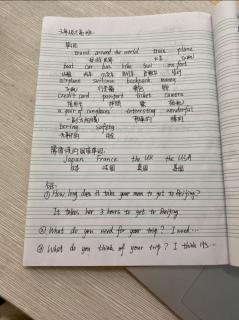 单词:
travel around the world train plane
环游世界 火车 飞机
boat car bus bike taxi on foot
airplane suitcase backpack money
credit card passport ticket camera
信用卡 护照 票
a pair of sunglasses interesting wonderful
一副太阳镜
boring safety
Japan France the UK the USA
日本 法国 英国 美国
① How long does it take your mom to get to Beijing?
It takes her 3 hours to get to Beijing.
② What do you need for your trip? I need...
③ What do you think of your trip? I think it's...